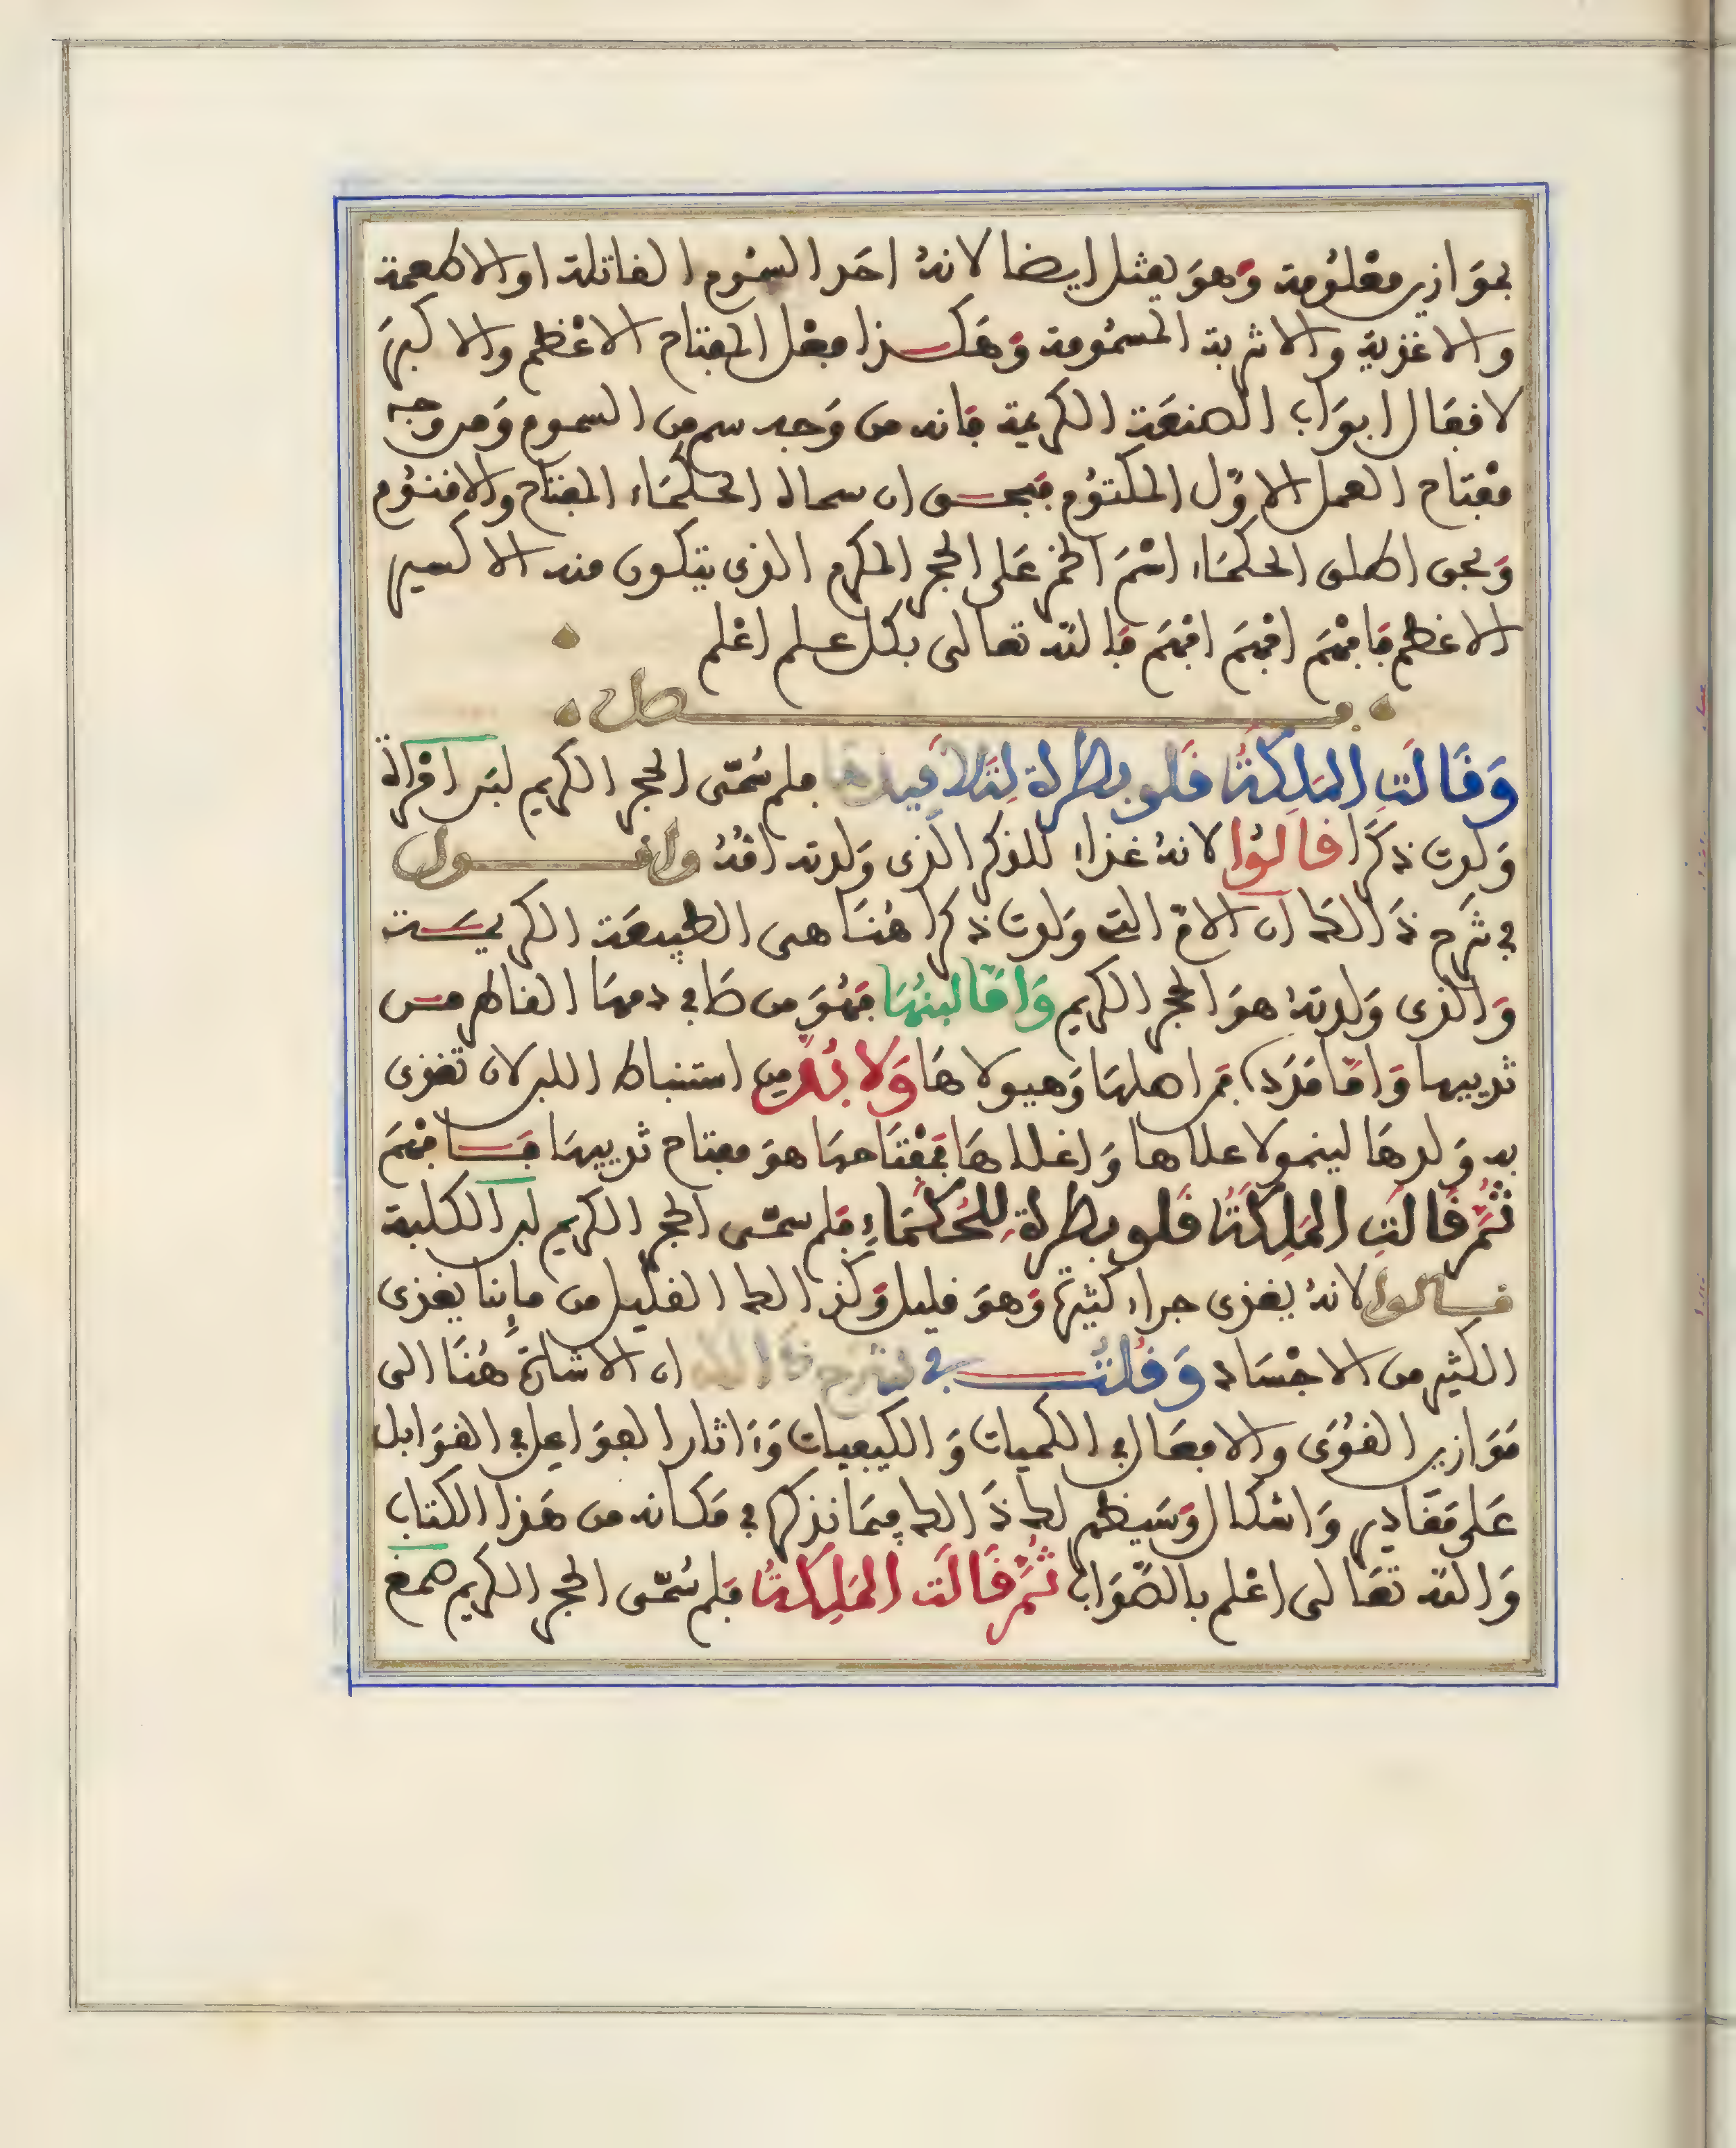 بموازين معلومة وَهوَ يقتل ايضا لانهُ احَد السمُوم القاتلة او الاطعمة
والاغذية والاشربة المسمُومة وَهَكذا فِعْل المِفتاح الاعْظم والاكبرَ
لاقفَال ابوَاب الصنعَة الكريمة فانه من وَجد سم من السموم وَمن وجه
مفْتاح العمل الاوّل المكتوُم فبحق ان سماه الحكمَاء المفتاح والاقنوُم
وَبحق اطلق الحكمَاء اسْمَ الخمر عَلى الحجر المكرم الذى يتكون منه الاكسير
الاعظم فَافْهَم افْهَم افْهَم فَالله تعالى بكل علم اعْلم
فصل
وَقَالَتِ المَلِكَةُ قَلوبطرة لِتَلاَمِيذهَا فلم سُمّى الحجر الكريم لبَن امْرأة
وَلدت ذكرًا قالوُا لانهُ غذاء للذكر الذى وَلدته امّهُ واقول
فى شَرح ذَالك ان الامّ التى وَلدت ذكرا هُنَا هى الطبيعَة الكريمَة
وَالذى وَلدتهُ هوَ الحجر الكريم وَامَّا لبنُهَا فهُوَ من صَافى دمهَا القاطر من
ثدييها وَامّا مَدَده فمن اهلهَا وَهيولاهَا وَلا بُدّ من استنباط اللبن لان تغذى
به وَلدهَا لينمو لاعلاها وَاغلاهَا فمِفْتَاحهَا هوَ مفتاح ثدييهَا فَافْهَم
ثُمَّ قَالَتِ المَلِكَةُ قَلوبطرة لِلحُكَمَاءِ فلم سمّى الحجر الكريم لبن الكلبة
قالوا لانهُ يغذى جراء كثيرة وَهوَ قليل وَكذالك القليل من مائنا يغذى
الكثير من الاجْسَاد وَقُلتُ فى شرح ذَالك ان الاشارة هُنَا الى
مَوَازين القُوَى والافعَال فى الكميات وَالكيفيات وَءَاثار الفوَاعل فى القوَابل
عَلى مَقَادير وَاشكال وَسَيظهر لك ذَالك فيمَا نذكره فى مَكانه من هَذا الكتاب
وَالله تعَالى اعْلم بالصّوَاب ثُمَّ قَالَت المَلِكَةُ فلم سُمّى الحجر الكريم صمغ